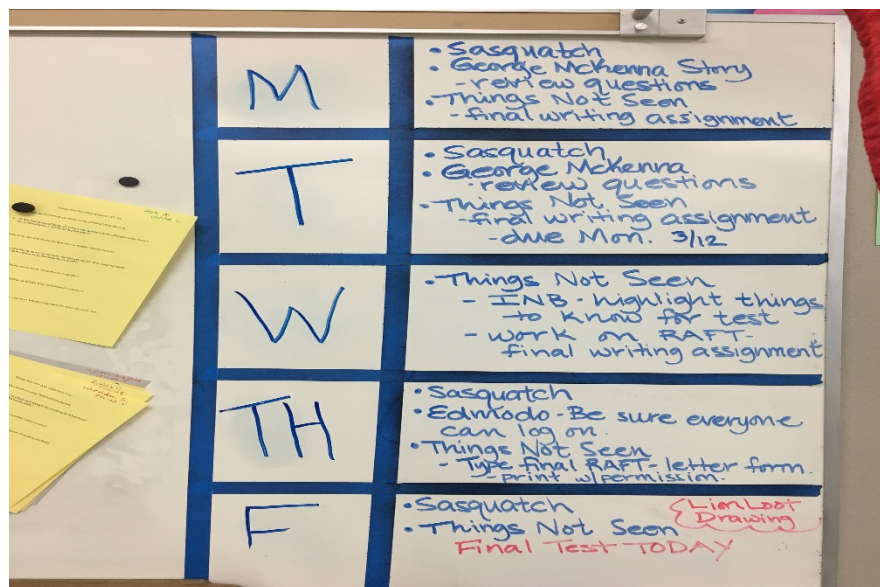 M
• Sasquatch
• George McKenna Story
- review questions
• Things Not Seen
- final writing assignment
T
• Sasquatch
• George McKenna
- review questions
• Things Not Seen
- final writing assignment
- due Mon. 3/12
W
• Things Not Seen
- INB - highlight things
to know for test
- work on RAFT -
final writing assignment
TH
• Sasquatch
• Edmodo - Be sure everyone
can log on.
• Things Not Seen
- Type final RAFT - letter form.
- print w/permission.
F
• Sasquatch
• Things Not Seen
Final Test TODAY
Lion Loot
Drawing